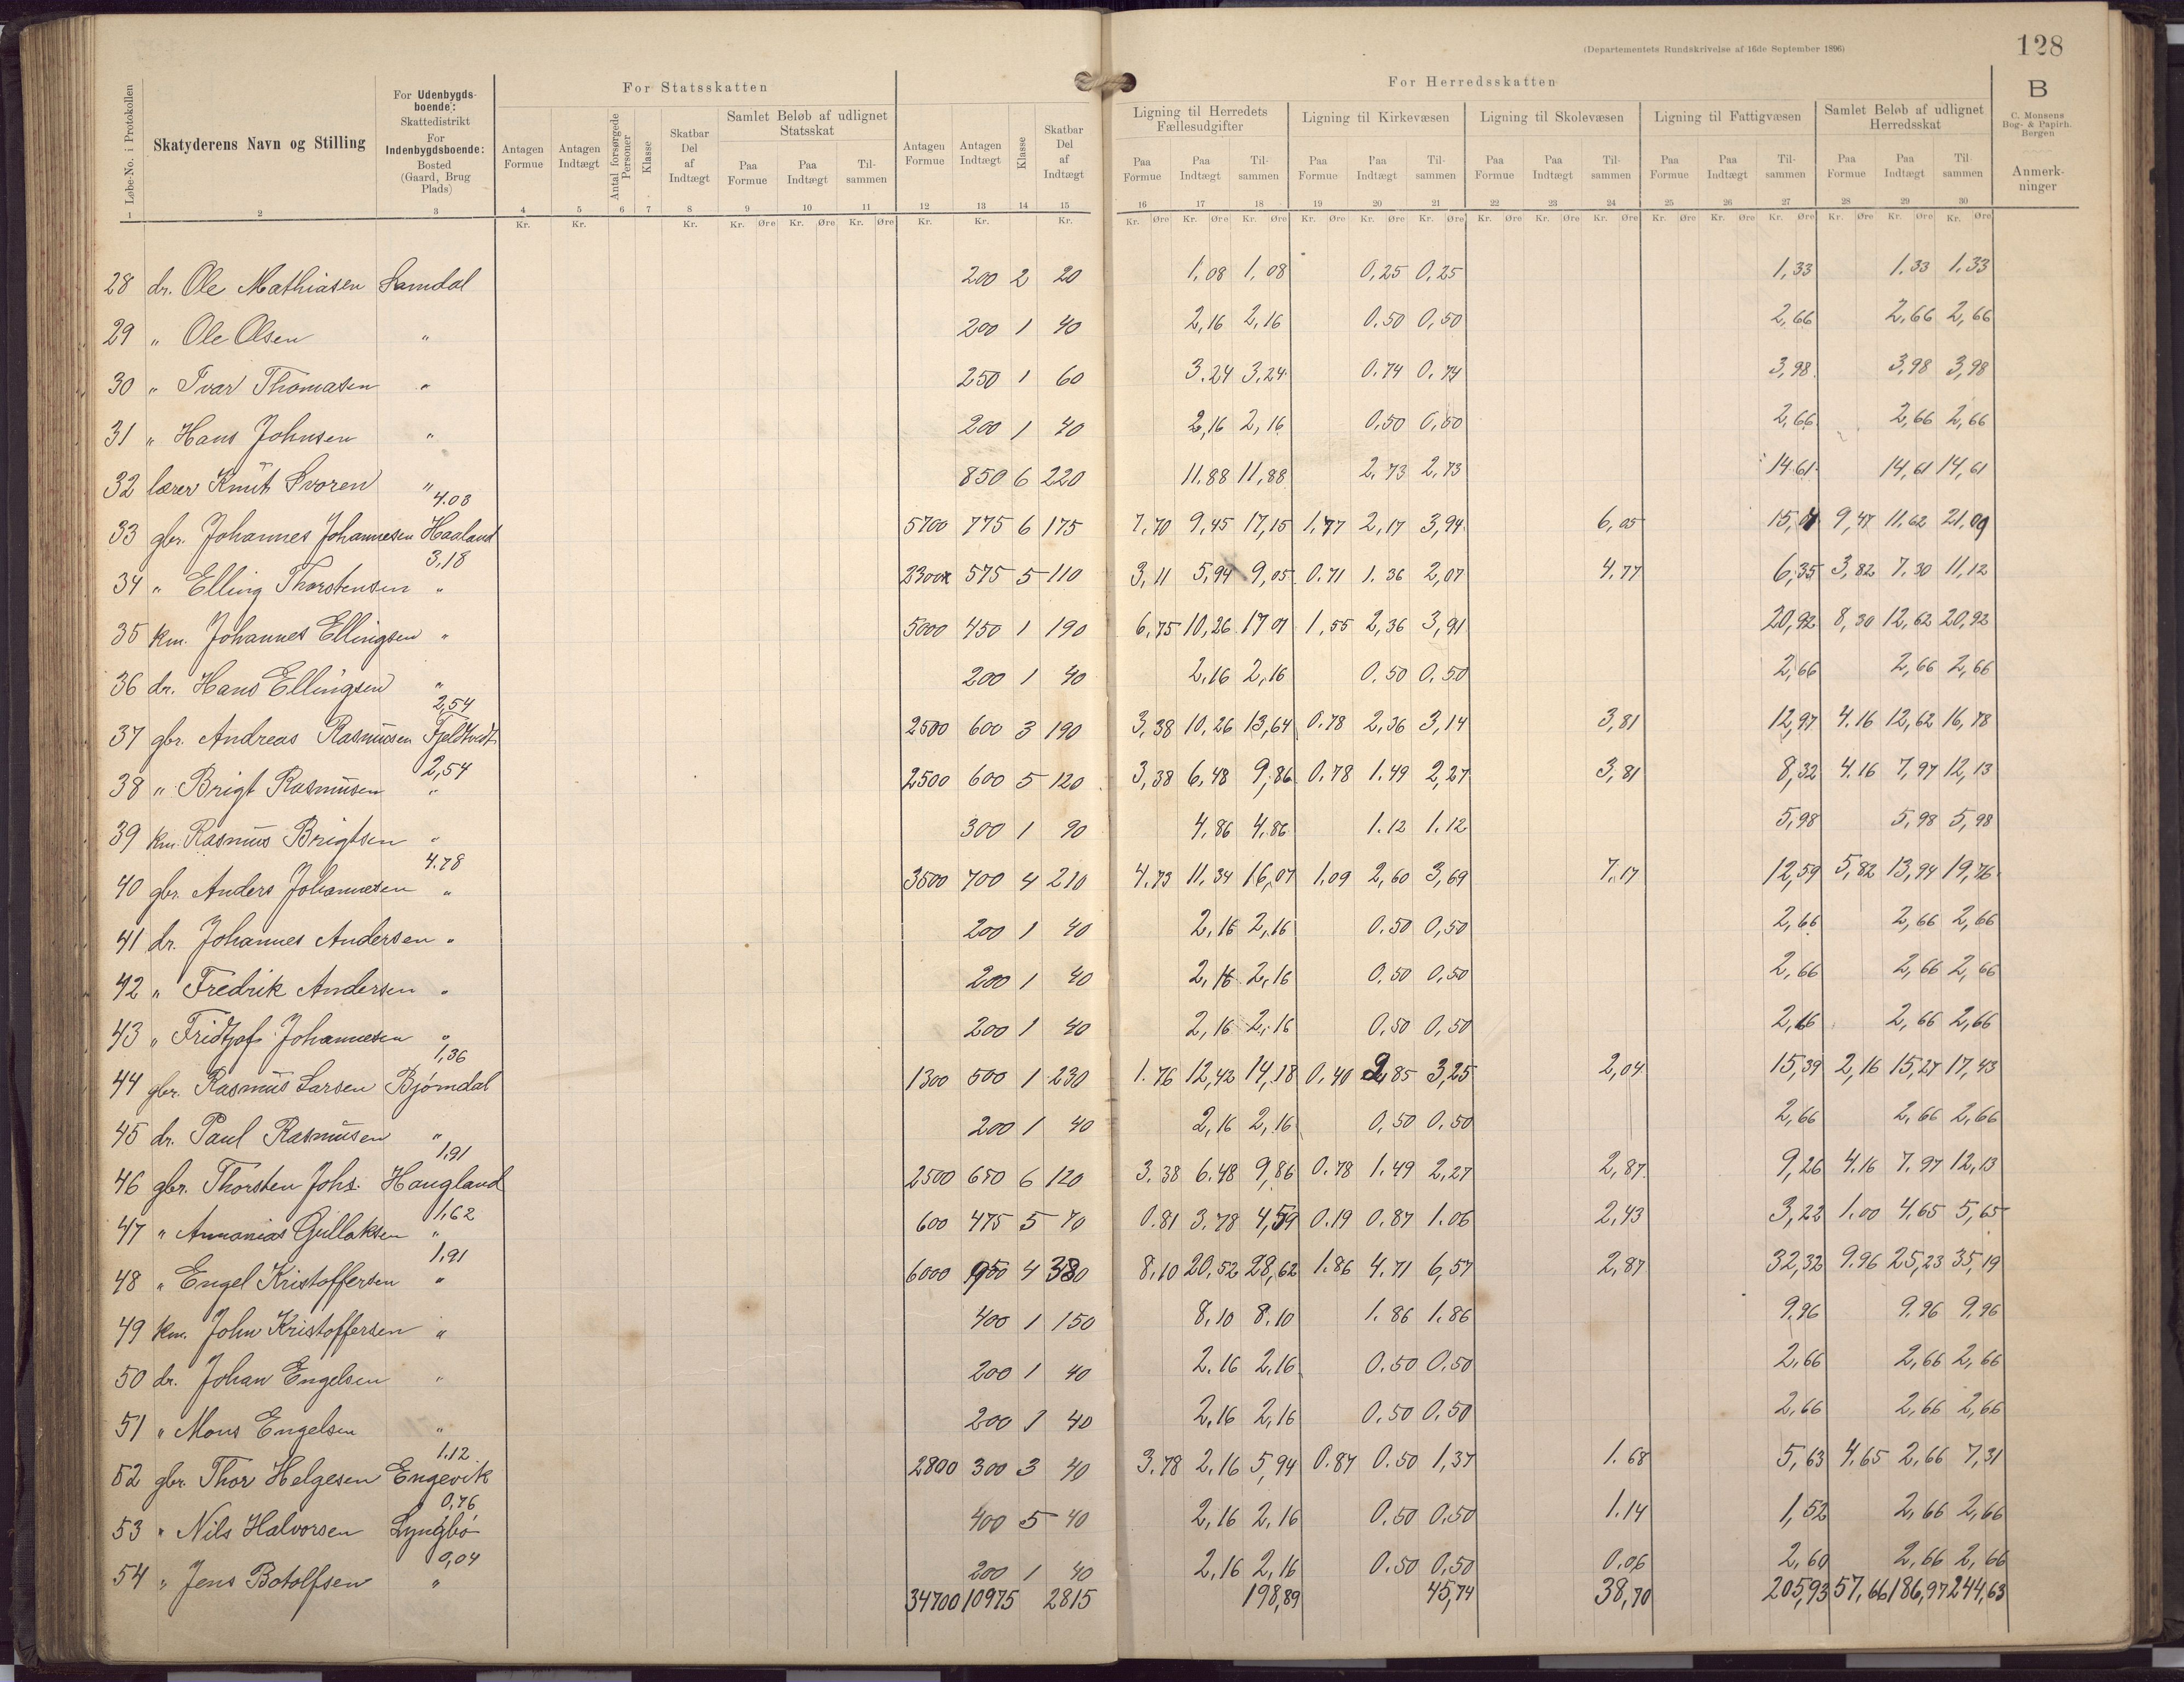 (Departementets Rundskrivelse af 16de September 1896)
128
For Statsskatten
For Herredsskatten
B
C. Monsens Bog- & Papirh. Bergen
Løbe-No. i Protokollen
Skatyderens Navn og Stilling
For Udenbygdsboende: Skattedistrikt For Indenbygdsboende: Bosted (Gaard, Brug Plads)
Antagen Formue
Antagen Indtægt
Antal forsørgede Personer
Klasse
Skatbar Del af Indtægt
Samlet Beløb af udlignet Statsskat
Paa Formue
Paa Indtægt
Tilsammen
Antagen Formue
Antagen Indtægt
Klasse
Skatbar Del af Indtægt
Ligning til Herredets Fællesudgifter
Paa Formue
Paa Indtægt
Tilsammen
Ligning til Kirkevæsen
Paa Formue
Paa Indtægt
Tilsammen
Ligning til Skolevæsen
Paa Formue
Paa Indtægt
Tilsammen
Ligning til Fattigvæsen
Paa Formue
Paa Indtægt
Tilsammen
Samlet Beløb af udlignet Herredsskat
Paa Formue
Paa Indtægt
Tilsammen
Anmerkninger
1 2 3 4 5 6 7 8 9 10 11 12 13 14 15 16 17 18 19 20 21 22 23 24 25 26 27 28 29 30
Kr. Kr. Kr. Kr. Øre Kr. Øre Kr. Øre Kr. Kr. Kr. Kr. Øre Kr. Øre Kr. Øre Kr. Øre Kr. Øre Kr. Øre Kr. Øre Kr. Øre Kr. Øre Kr. Øre Kr. Øre Kr. Øre Kr. Øre Kr. Øre Kr. Øre
28 dr. Ole Mathiasen Samdal 200 2 20 1,08 1,08 0,25 0,25 1,33 1.33 1.33
29 " Ole Olsen " 200 1 40 2,16 2,16 0.50 0,50 2,66 2,66 2,66
30 " Ivar Thomasen " 250 1 60 3.24 3,24 0.74 0.74 3,98 3,98 3,98
31 " Hans Johnsen " 200 1 40 2,16 2,16 0,50 0,50 2,66 2,66 2,66
32 lærer Knut Svoren " 850 6 220 11.88 11,88 2,73 2,73 14.61 14,61 14,61
4.03
33 gbr. Johannes Johannesen Haaland 5700 775 6 175 7,70 9,45 17,15 1,77 2,17 3,94 6,05 15,04 9,47 11,62 21,09
3,18
34 " Elling Thorstensen " 2300 575 5 110 3,11 5,94 9,05 0.71 1.36 2,07 4.77 6,35 3,82 7.30 11,12
35 km. Johannes Ellingsen " 5000 450 1 190 6,75 10,26 17 01 1,55 2,36 3,91 20,92 8,30 12,62 20,92
36 dr. Hans Ellingsen " 200 1 40 2,16 2,16 0.50 0.50 2,66 2,66 2,66
2,54
37 gbr. Andreas Rasmusen Fjeldtvedt 2500 600 3 190 3,38 10,26 13,64 0.78 2,36 3,14 3,81 12,97 4.16 12,62 16,78
2,54
38 " Brigt Rasmusen " 2500 600 5 120 3,38 6,48 9,86 0.78 1.49 2,27 3,81 8,32 4.16 7,97 12,13
39 km. Rasmus Brigtsen " 300 1 90 4,86 4,86 1.12 1.12 5,98 5,98 5,98
4.78
40 gbr. Anders Johannesen " 3500 700 4 210 4.73 11,34 16,07 1,09 2,60 3,69 7,17 12,59 5,82 13,94 19,76
41 dr. Johannes Andersen " 200 1 40 2,16 2,16 0.50 0,50 2,66 2,66 2,66
42 " Fredrik Andersen " 200 1 40 2,16 2,16 0,50 0,50 2,66 2,66 2,66
43 " Fridtjof Johannesen " 200 1 40 2,16 2,16 0,50 0,50 2,66 2,66 2,66
1,36
44 gbr. Rasmus Larsen Bjørndal 1300 500 1 230 1.76 12,42 14,18 0,40 2,85 3,25 2,04 15,39 2,16 15,27 17,43
45 dr. Paul Rasmusen " 200 1 40 2,16 2,16 0,50 0.50 2,66 2,66 2,66
1,91
46 gbr. Thorsten Johs. Haugland 2500 650 6 120 3.38 6.48 9,86 0.78 1.49 2,27 2,87 9,26 4.16 7.97 12,13
1,62
47 " Annanias Gullaksen " 600 475 5 70 0.81 3.78 4,59 0.19 0,87 1.06 2,43 3,22 1.00 4.65 5,65
1,91
48 " Engel Kristoffersen " 6000 950 4 380 8,10 20,52 28,62 1.86 4.71 6,57 2,87 32,32 9.96 25,23 35,19
49 km. John Kristoffersen " 400 1 150 8,10 8.10 1.86 1.86 9,96 9.96 9.96
50 dr. Johan Engelsen " 200 1 40 2.16 2,16 0.50 0,50 2,66 2,66 2,66
51 " Mons Engelsen " 200 1 40 2,16 2,16 0.50 0,50 2,66 2,66 2,66
1.12
52 gbr. Thor Helgesen Engevik 2800 300 3 40 3.78 2,16 5,94 0.87 0.50 1,37 1.68 5,63 4,65 2,66 7,31
0,76
53 " Nils Halvorsen Lyngbø 400 5 40 2,16 2,16 0.50 0.50 1.14 1,52 2,66 2,66
0,04
54 " Jens Botolfsen " 200 1 40 2,16 2,16 0.50 0,50 0.06 2,60 2.66 2,66
34700 10975 2815 198,89 45,74 38,70 205,93 57,66 186,97 244,63